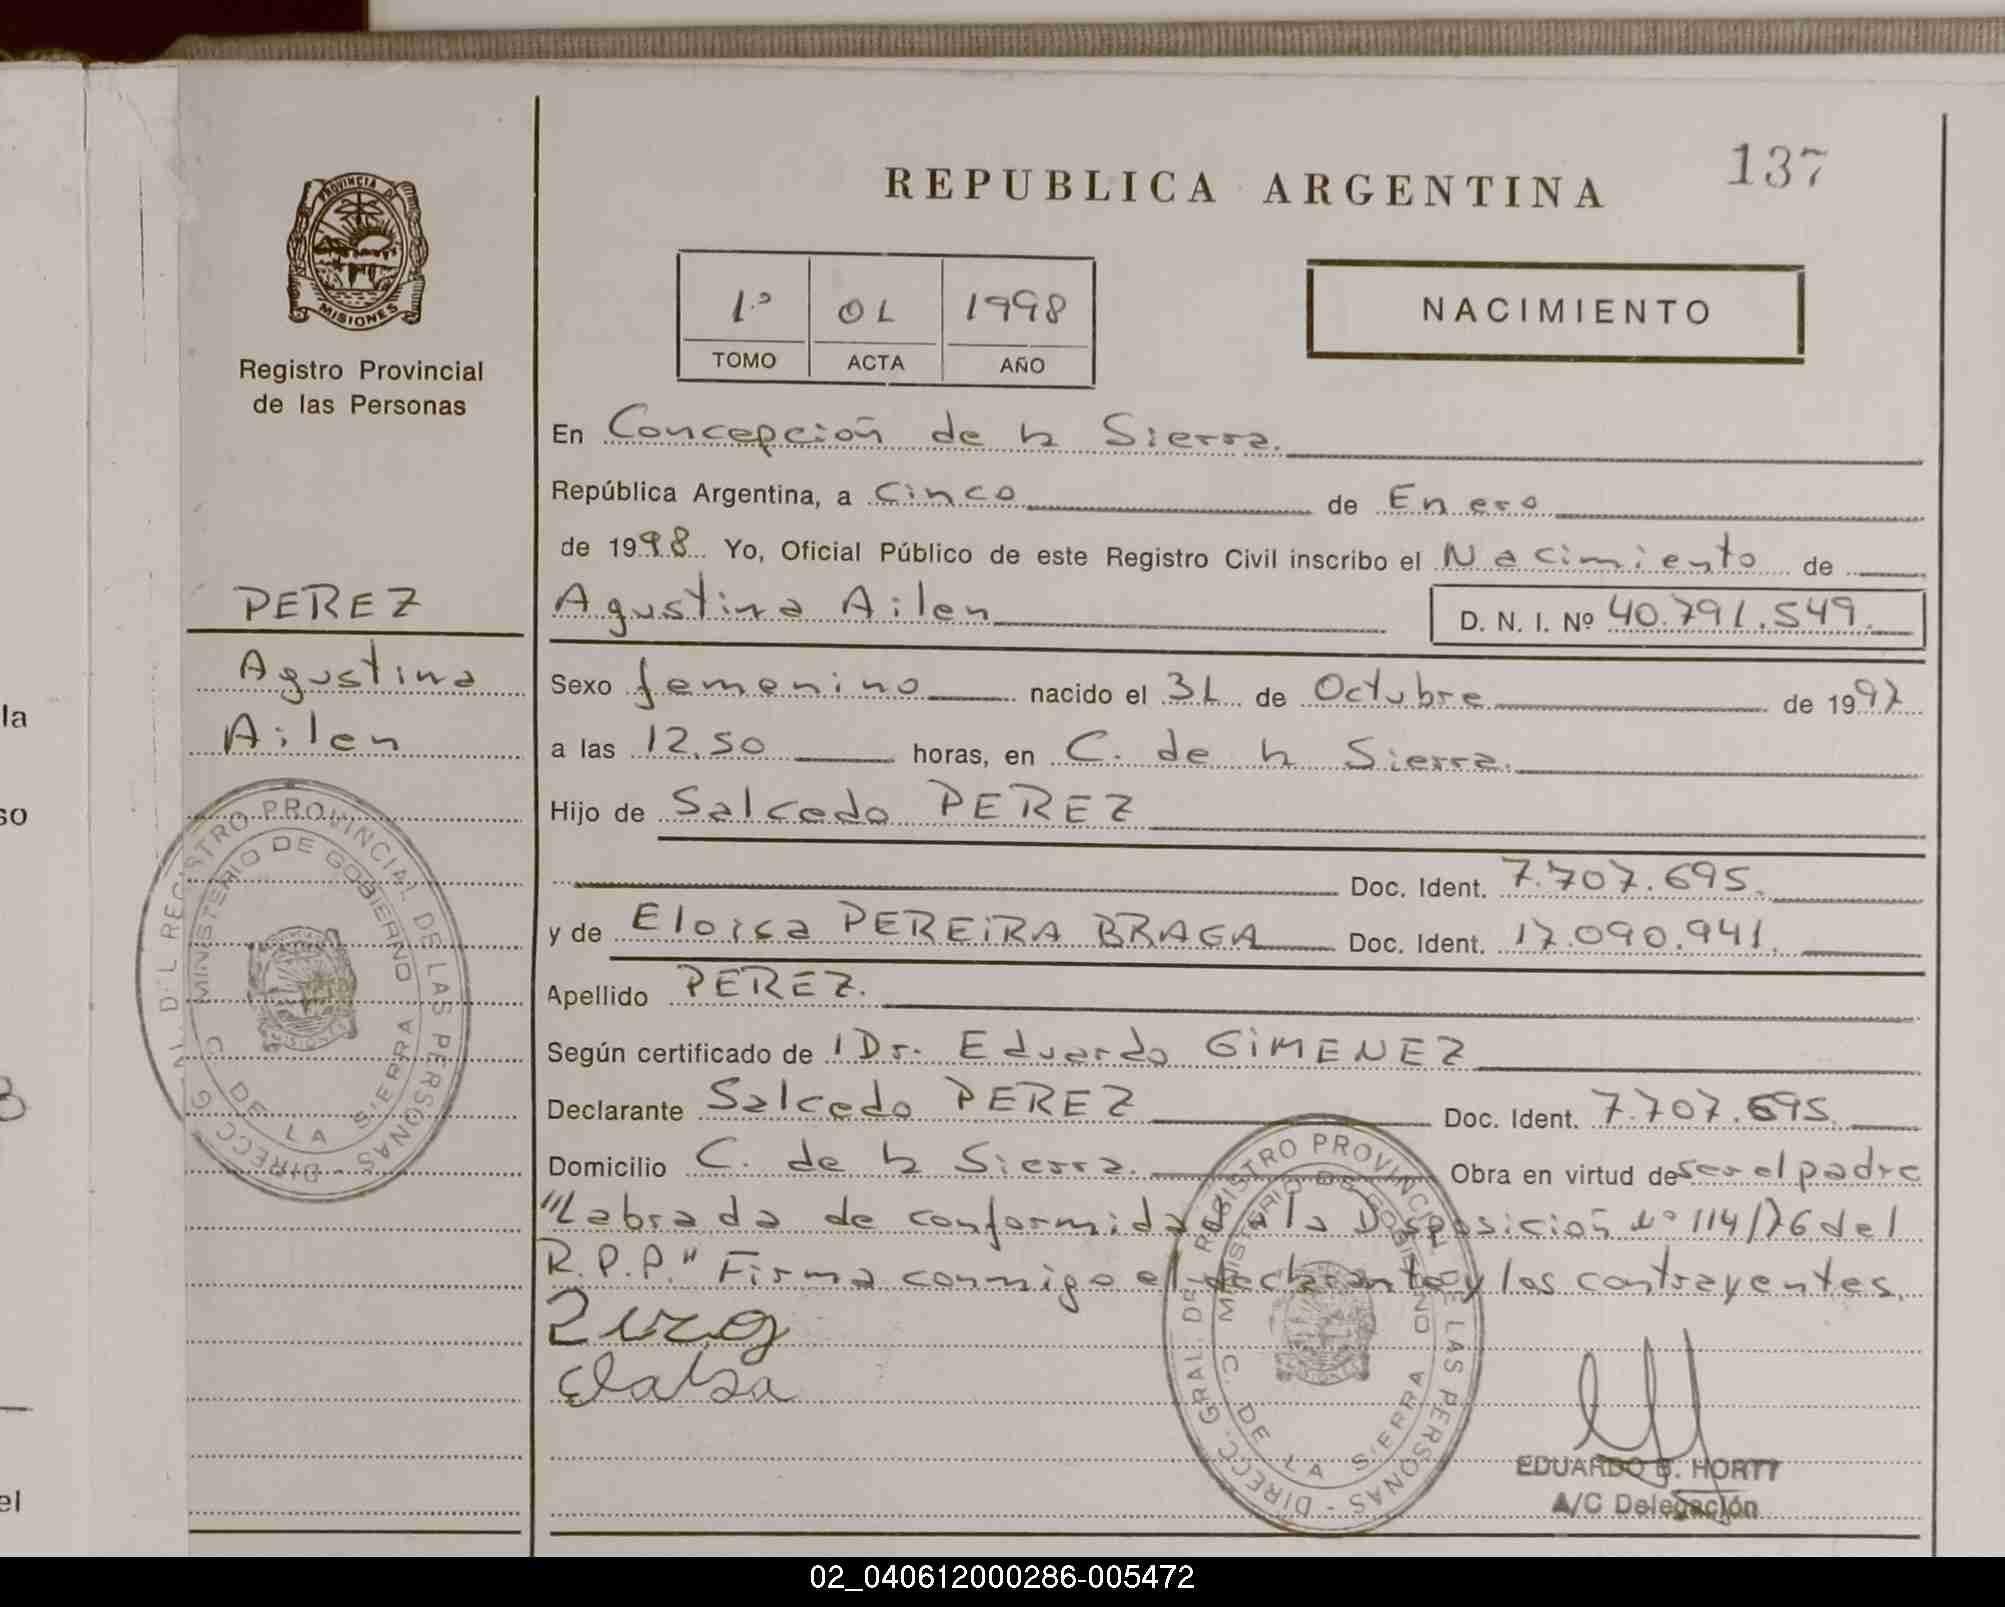 137
REPUBLICA ARGENTINA
PROVINCIA DE
MISIONES
Registro Provincial
de las Personas
1º 01 1998
TOMO ACTA AÑO
NACIMIENTO
En Concepción de la Sierra.
República Argentina, a Cinco de Enero
de 1998 Yo, Oficial Público de este Registro Civil inscribo el Nacimiento de
Agustina Ailen D. N. I. Nº 40.791.549.
Sexo femenino nacido el 31 de Octubre de 1997
a las 12.50 horas, en C. de la Sierra.
Hijo de Salcedo PEREZ
Doc. Ident. 7.707.695.
y de Eloisa PEREIRA BRAGA Doc. Ident. 17.090.941.
Apellido PEREZ.
Según certificado de 1 Dr. Eduardo GIMENEZ
Declarante Salcedo PEREZ Doc. Ident. 7.707.695.
Domicilio C. de la Sierra. Obra en virtud de ser el padre
"Labrada de conformidad a la Disposición Nº 114/76 del
R.P.P." Firma conmigo el declarante y los contrayentes.
EDUARDO B. HORTT
A/C Delegación
PEREZ
Agustina
Ailen
DIRECC. GRAL. DEL REGISTRO PROVINCIAL DE LAS PERSONAS
MINISTERIO DE GOBIERNO
C. DE LA SIERRA
DIRECC. GRAL. DEL REGISTRO PROVINCIAL DE LAS PERSONAS
MINISTERIO DE GOBIERNO
C. DE LA SIERRA
la
so
el
02_040612000286-005472